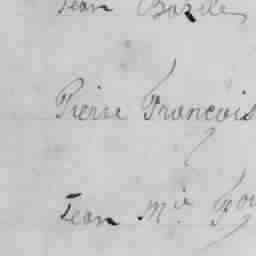 Jean Bazile
Pierre Francois
Jean Mie